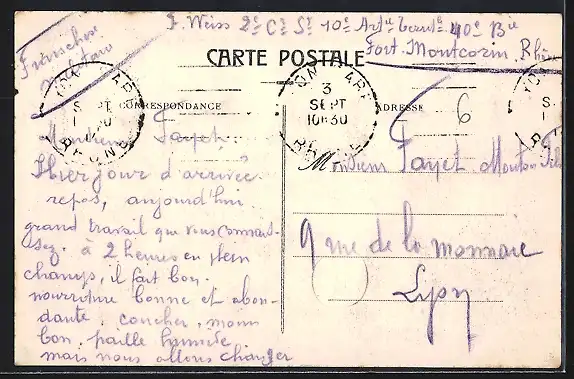 F. Weiss 2e Cr St 10e Artie Terrle 40e Bie
Fort Montcorin, Rhône
Franchise
militaire
CARTE POSTALE
CORRESPONDANCE
ADRESSE
3
SEPT
10H30
RHONE
6
Monsieur Fayet.
Hier jour d'arrivée
repos, aujourd'hui
grand travail que vous connais-
sez. à 2 heures en plein
champs, il fait bon.
nourriture bonne et abon-
dante, coucher, moins
bon, paille humide
mais nous allons changer
Monsieur Fayet Mouton Fils
9 rue de la monnaie
Lyon